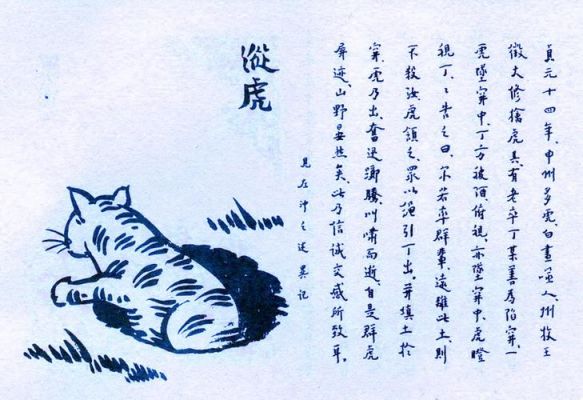 縱虎
貞元十四年、申州多虎、白晝噬人、州牧王
徵大修擒虎具、有老卒丁某善為陷穽、一
虎墜穽中、丁方被酒俯視、亦墜穽中、虎瞪
視丁、々告之曰、尔若率群輩、遠離此土、則
不殺汝、虎頷之、眾以繩引丁出、并填土於
穽、虎乃出、奮迅躑騰、叫嘯而逝、自是群虎
屏迹、山野晏然矣、此乃信誠交感所致耳。
見左沖之述異記